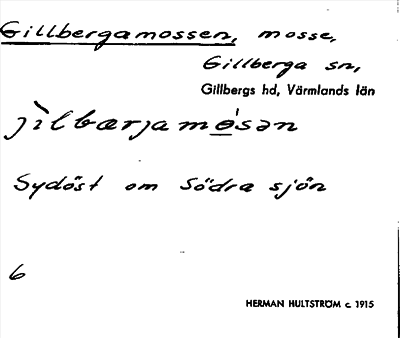 Gillbergamossen, mosse,
Gillberga sn,
Gillbergs hd, Värmlands län
jìlbærjamɵ́sən
Sydöst om Södra sjön
6
HERMAN HULTSTRÖM c 1915